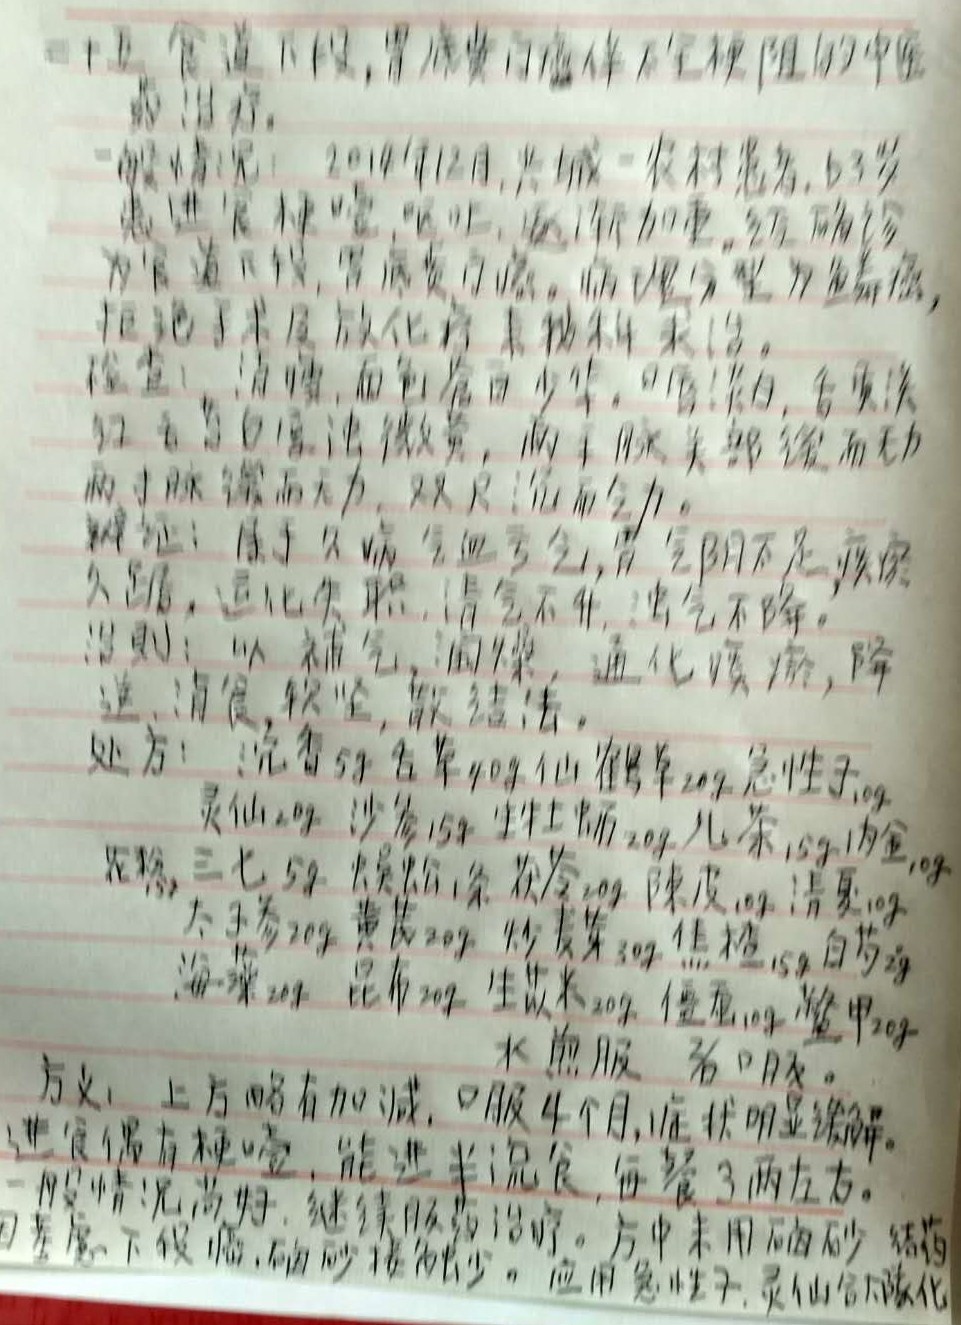 二十五 食道下段,胃底贲门癌伴不全梗阻的中医
药治疗。
一般情况: 2014年12月,兴城一农村患者,63岁
患进食梗噎,呕吐,逐渐加重。经确诊
为食道下段,胃底贲门癌。病理分型为鳞癌,
拒绝手术及放化疗 来我科求治。
检查: 消瘦,面色苍白少华。口唇淡白,舌质淡
红舌苔白厚浊微黄,两手脉关部缓而无力
两寸脉缓而无力,双尺沉而乏力。
辨证:属于久病气血亏乏,胃气阴不足,痰瘀
久踞,运化失职,清气不升,浊气不降。
治则:以补气,润燥,通化痰瘀,降
逆,消食,软坚,散结法。
处方: 沉香5g 舌草40g 仙鹤草20g 急性子10g
灵仙20g 沙参15g 生牡蛎20g 儿茶15g 内金10g
三七5g 蜈蚣1条 茯苓20g 陳皮10g 清夏10g
太子参20g 黄芪20g 炒麦芽30g 焦楂15g 白芍
海藻20g 昆布20g 生苡米20g 僵蚕10g 鳖甲20g
水煎服
方义: 上方略有加减,口服4个月,症状明显缓解。
进食偶有梗噎,能进半流食,每餐3两左右。
一般情况尚好,继续服药治疗。方中未用硇砂
下段癌,硇砂接触少。应用急性子,灵仙